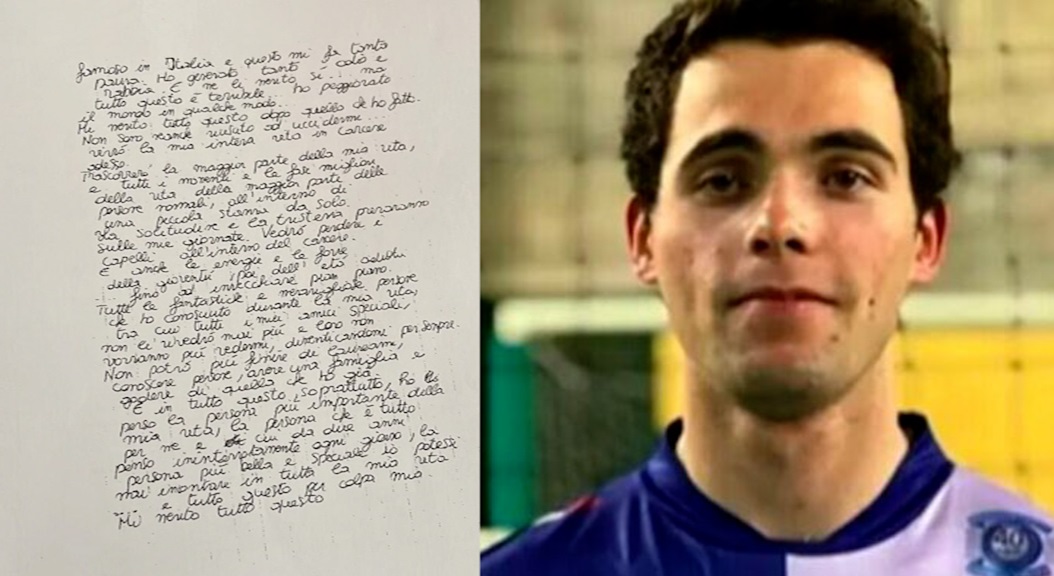 famoso in Italia e questo mi fa tanta
paura. Ho generato tanto odio e
rabbia. E me li merito sì... ma
tutto questo è terribile... ho peggiorato
il mondo in qualche modo...
Mi merito tutto questo dopo quello che ho fatto.
Non sono neanche riuscito ad uccidermi...
vivrò la mia intera vita in carcere
adesso.
Trascorrerò la maggior parte della mia vita,
e tutti i momenti e le fasi migliori
della vita della maggior parte delle
persone normali, all'interno di
una piccola stanza da solo.
La solitudine e la tristezza prevarranno
sulle mie giornate. Vedrò perdere i
capelli all'interno del carcere.
E anche le energie e le forze
della gioventù, poi dell'età adulta
... fino ad invecchiare pian piano.
Tutte le fantastiche e meravigliose persone
che ho conosciuto durante la mia vita,
tra cui tutti i miei amici speciali,
non li rivedrò mai più e loro non
vorranno più vedermi, dimenticandomi per sempre.
Non potrò più finire di laurearmi,
conoscere persone, avere una famiglia e
godere di quella che ho già.
E in tutto questo, soprattutto, ho
perso la persona più importante della
mia vita, la persona che è tutto
per me e a cui da due anni
penso ininterrottamente ogni giorno, la
persona più bella e speciale io potessi
mai incontrare in tutta la mia vita
e tutto questo per colpa mia.
Mi merito tutto questo
40